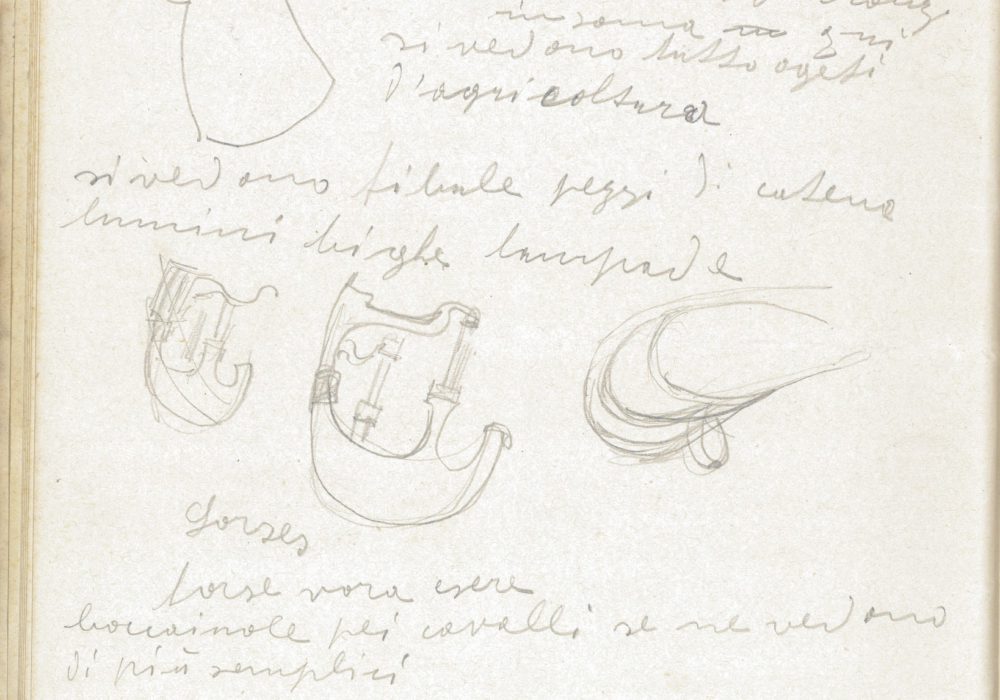 insoma in qui
si vedono tutto ogeti
d'agricoltura
si vedono fibule pezzi di catena
lumini bighe lampade
forses
forse vora esere
boccainole pei cavalli se ne vedono
di più semplici